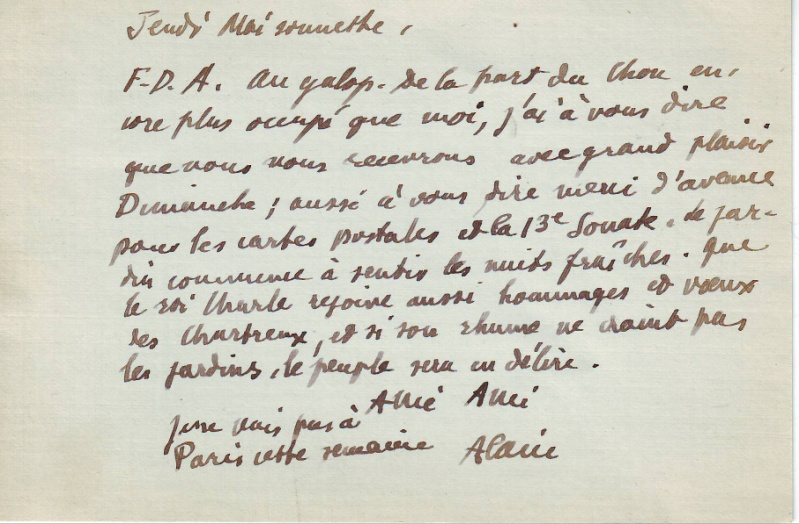 Jeudi Moi sonnette,
F-D. A. Au galop. de la part du Chou en-
core plus occupé que moi, j'ai à vous dire
que nous vous recevrons avec grand plaisir
Dimanche ; aussi à vous dire merci d'avance
pour les cartes postales et la 13e Sonate. Le jar-
din commence à sentir les nuits fraîches. Que
le roi Charle reçoive aussi hommages et vœux
des Chartreux, et si son rhume ne craint pas
les jardins, le peuple sera en délire.
Amé Ami
je ne vais pas à
Paris cette semaine
Alain